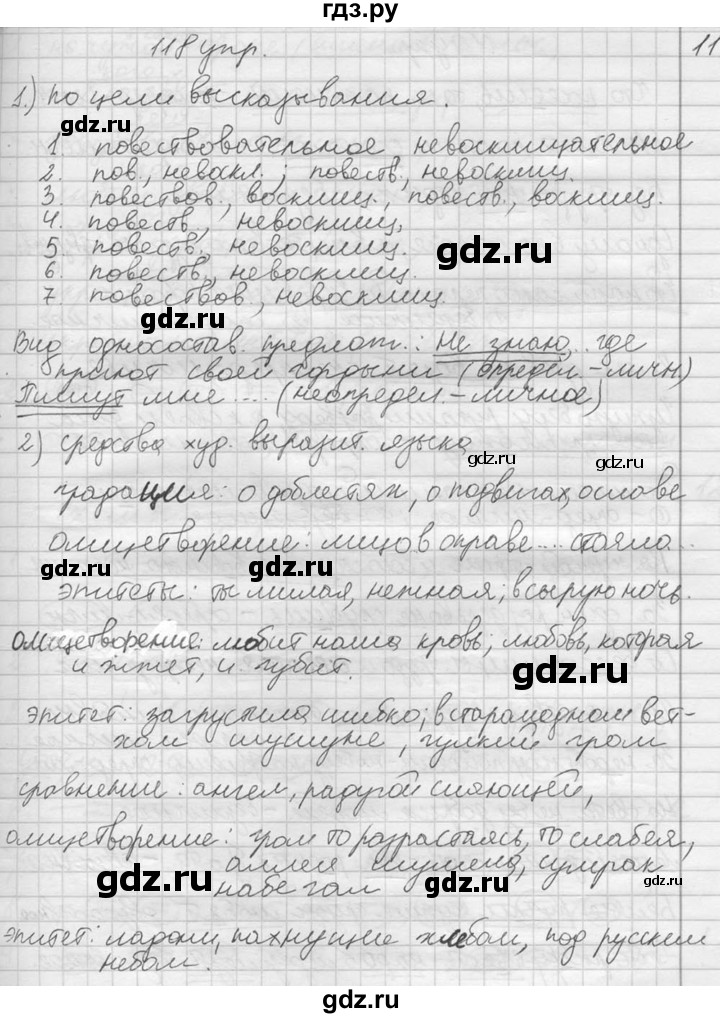 гдз.ру
118 упр.
11
1.) по цели высказывания.
gdz.ru
1. повествовательное невосклицательное
2. пов., невоскл.; повеств., невосклиц.
3. повествов., восклиц., повеств., восклиц.
4. повеств., невосклиц.
5. повеств., невосклиц.
gdz.ru
6. повеств., невосклиц.
7 повествов., невосклиц.
gdz.ru
Вид односостав. предлож.: Не знаю, где
приют своей гордыни (определ-личн)
Пишут мне .... (неопредел-личное)
2) средства худ. выразит. языка
gdz.ru
градация: о доблестях, о подвигах, о славе
олицетворение: лицо в оправе .... стояло..
gdz.ru gdz.ru
эпитеты: ты милая, нежная; в сырую ночь.
олицетворение: любит наша кровь; любовь, которая
и жжет, и губит.
gdz.ru
эпитет: загрустила шибко; в старомодном вет-
хом шушуне, гулкий гром
gdz.ru
сравнение: ангел, радугой сияющей,
олицетворение: гром то разрастаясь, то слабея,
аллея шумела, сумрак
набегал
gdz.ru gdz.ru gdz.ru
эпитет: ладони, пахнущие хлебом, под русским
небом.
gdz.ru